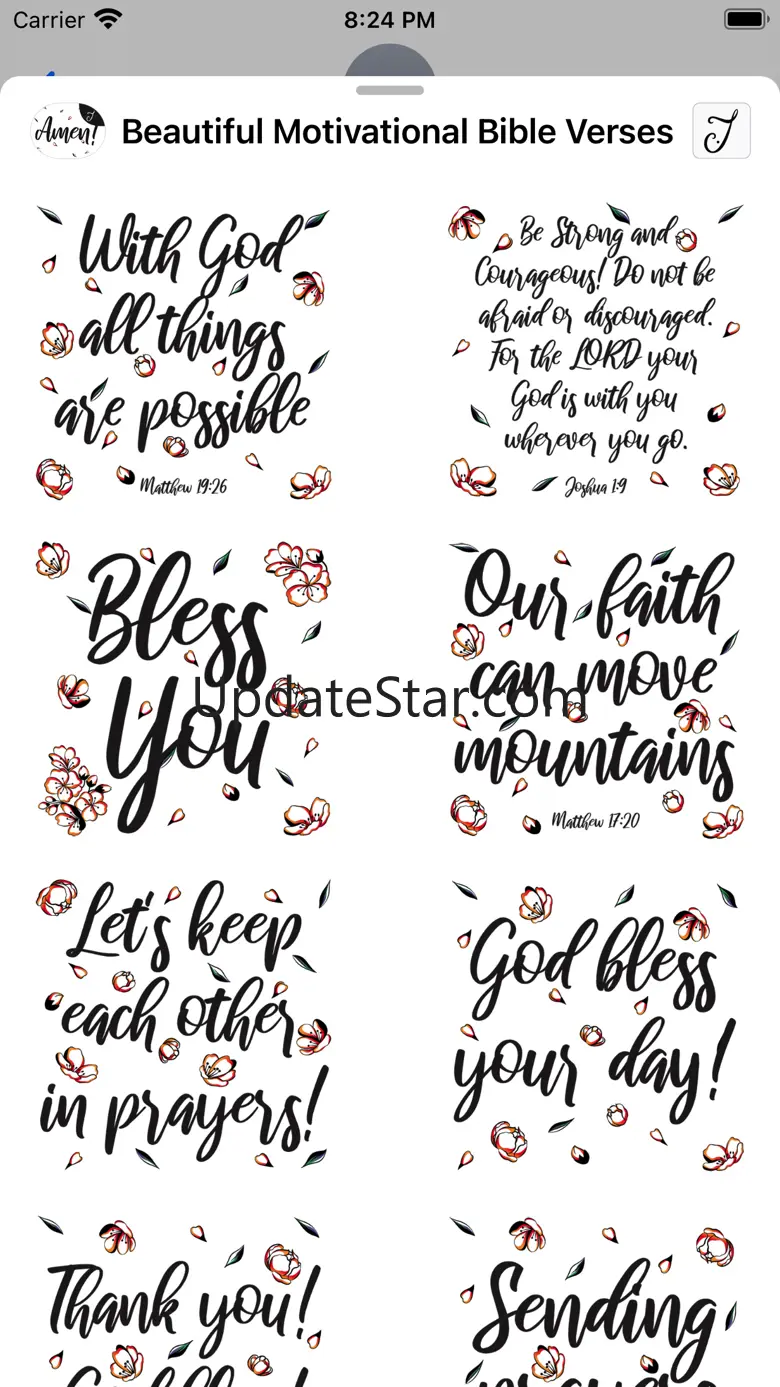 Carrier 8:24 PM
Amen! J Beautiful Motivational Bible Verses J
With God
all things
are possible
Matthew 19:26
Be Strong and
Courageous! Do not be
afraid or discouraged.
For the LORD your
God is with you
wherever you go.
Joshua 1:9
Bless
You
Our faith
can move
mountains
Matthew 17:20
UpdateStar.com
Let's keep
each other
in prayers!
God bless
your day!
Thank you!
Sending